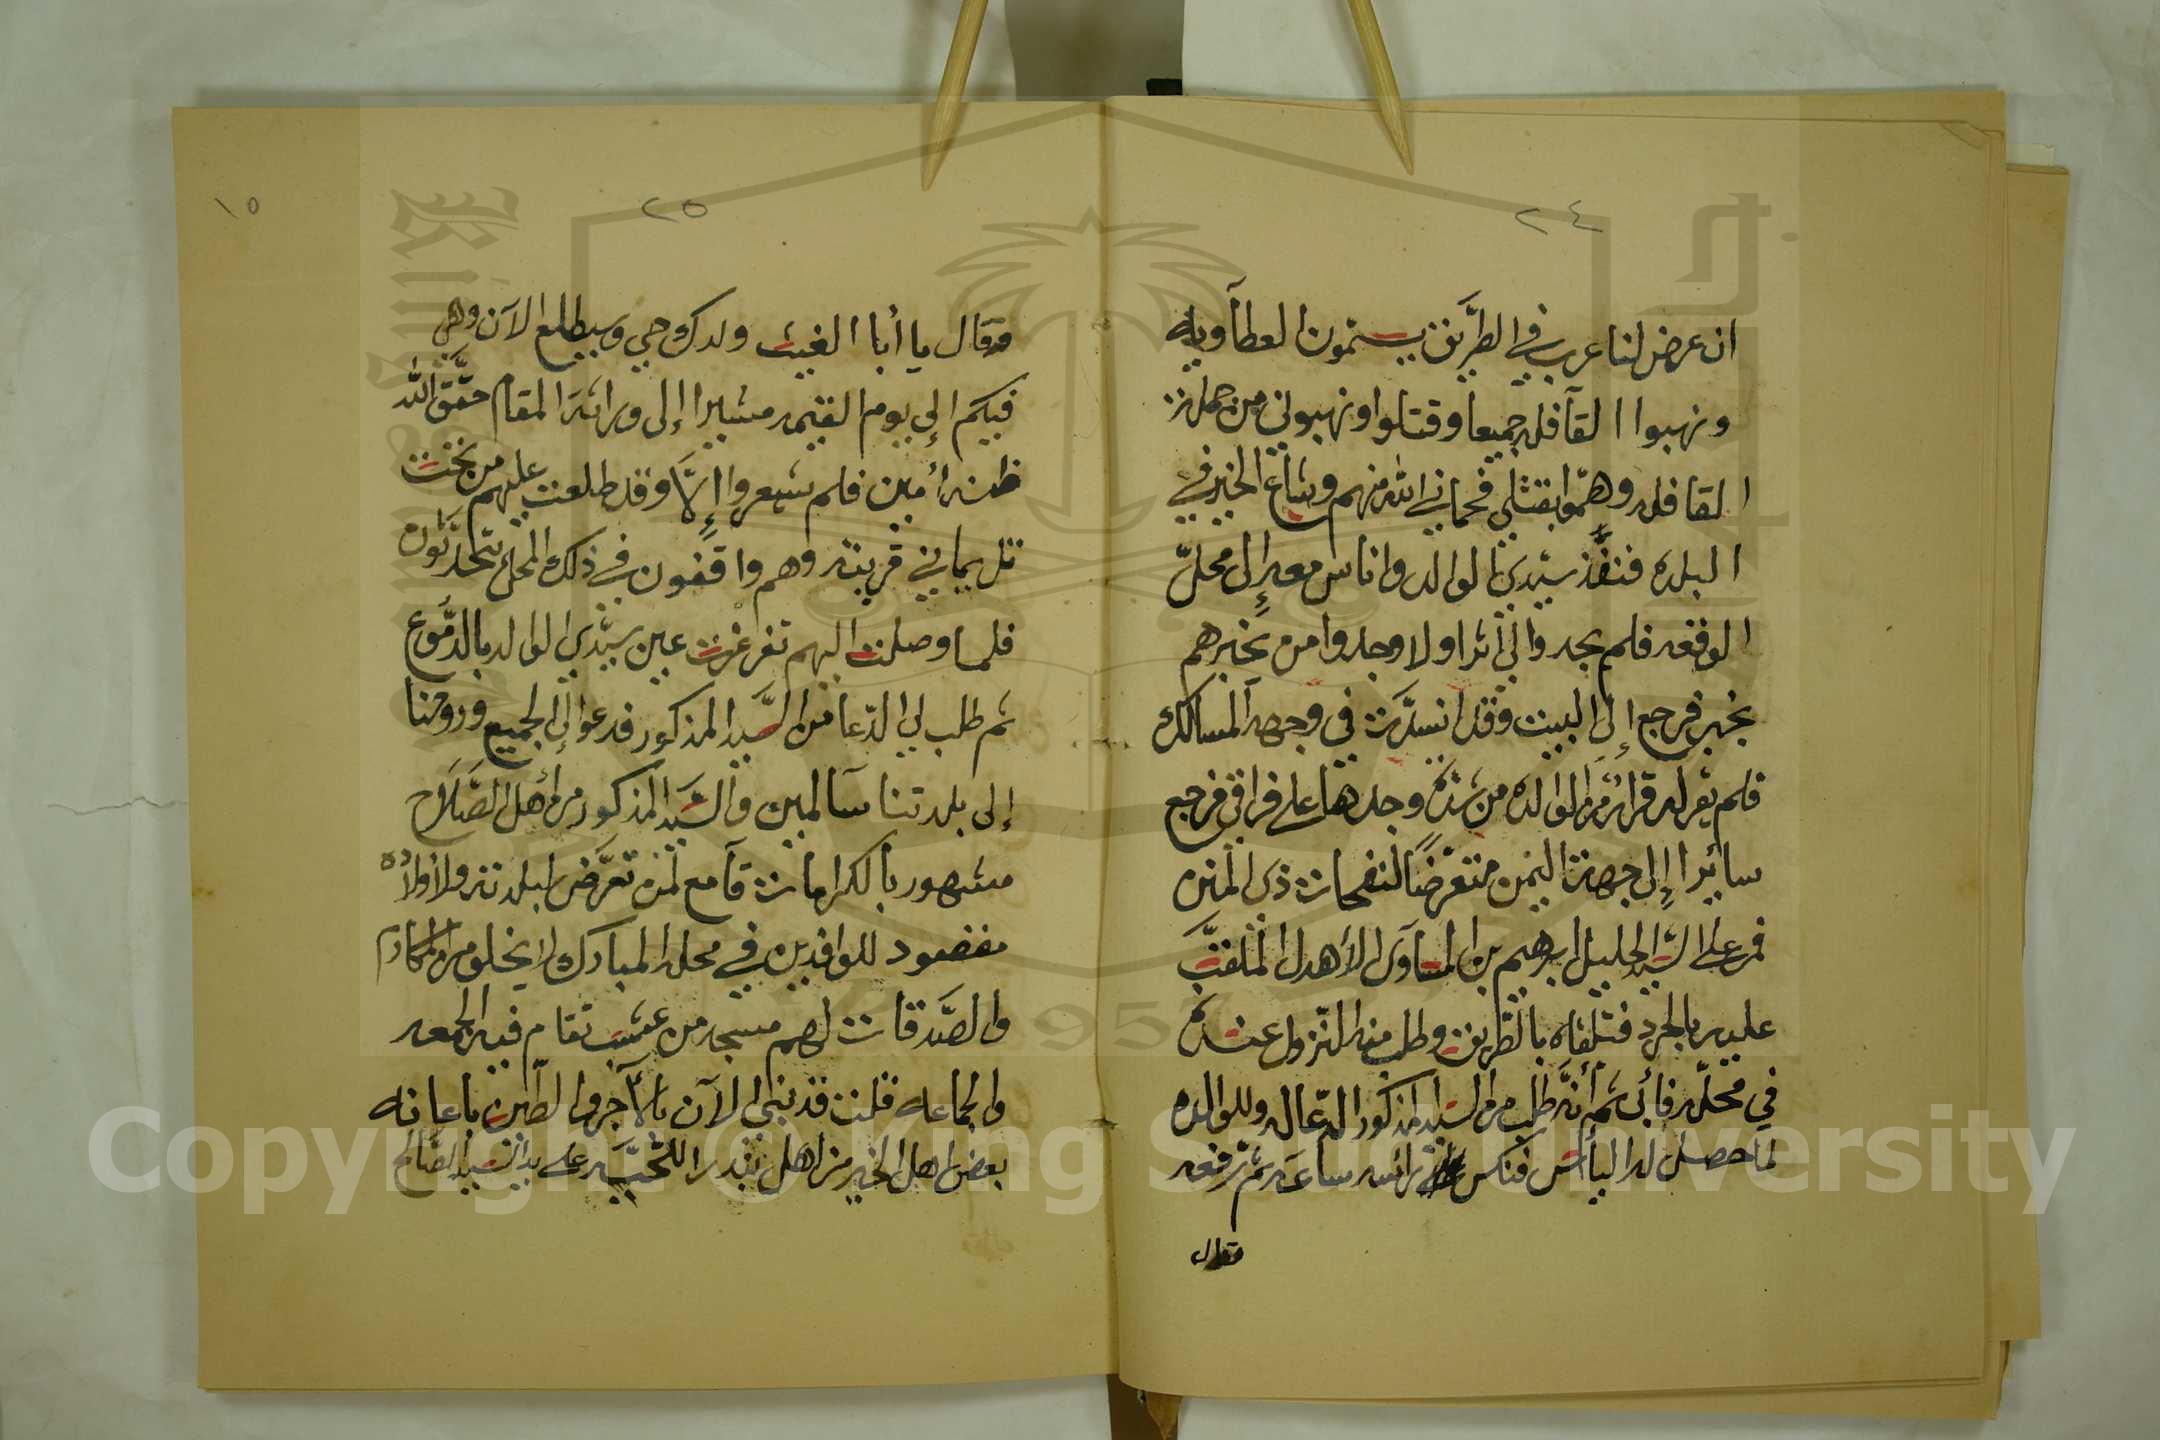 ٢٤
ان عرض لنا عرب في الطريق يسمون العطآويه
ونهبوا القآفله جميعا وقتلوا ونهبوني من جملة
القافله وهمّوا بقتلي فحماني الله منهم وشاع الخبر في
البلده فنفّذ سيّدي الوالد واناس معه إلى محلّ
الوقعه فلم يجدوا لي اثرا ولا وجدوا من يخبرهم
بخبر فرجع إلى البيت وقد انسدّت في وجهه المسالك
فلم يقر له قرار من الوالده من شدّة وجدها على فراقي فرجع
سائرا إلى جهة اليمن متعرّضًا لنفحات ذي المنن
فمر على السّيد الجليل ابرهيم بن المساوى الأهدل الملقّب
عليه بالجرد فتلقاه بالطّريق وطلب منه النزول عنده
في محلّه فأبى ثم أنّه طلب من السيد المذكور الدّعا له وللوالده
لما حصل له اليأس فنكس رائسه ساعة ثم رفعه
فقال
١٥
٢٥
فقال يا أبا الغيث ولدك حي وسيطلع الآن وهي
فيكم إلى يوم القيمه مشيرا إلى وراثة المقام حقّق الله
ظنه أمين فلم شعروا إلّا وقد طلعت عليهم من تحت
تل يماني قريته وهم واقفون في ذلك المحل يتحدّثون
فلما وصلت اليهم تغرغرت عين سيّدي الوالد بالدّموع
ثم طلب لي الدّعا من السّيد المذكور فدعوا لي الجميع وروحنا
إلى بلدتنا سآلمين والسّيد المذكور من أهل الصّلاح
مشهور بالكرامات قآمع لمن تعرّض لبلدته ولأولاده
مقصود للوافدين في محله المبارك لا يخلو من المكارم
والصّدقات لهم مسجد من عشب تقام فيه الجمعه
والجماعه قلت قد بني الآن بالآجر والطّين باعانه
بعض اهل الخير من اهل بندر اللحّيّه على يد السّيد الصّالح